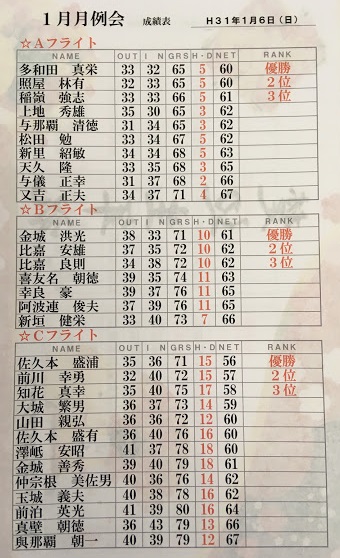 1月月例会 成績表 H31年1月6日(日)
☆Aフライト
NAME OUT I N GRS H・D NET RANK
多和田 真栄 33 32 65 5 60 優勝
照屋 林有 32 33 65 5 60 2位
稲嶺 強志 33 33 66 5 61 3位
上地 秀雄 35 30 65 3 62
与那覇 清徳 31 34 65 3 62
松田 勉 33 34 67 5 62
新里 紹敏 34 34 68 5 63
天久 隆 33 35 68 3 65
与儀 正幸 31 37 68 2 66
又吉 正夫 34 37 71 4 67
☆Bフライト
NAME OUT I N GRS H・D NET RANK
金城 洪光 38 33 71 10 61 優勝
比嘉 安雄 37 35 72 10 62 2位
比嘉 良則 34 38 72 10 62 3位
喜友名 朝徳 39 35 74 11 63
幸良 豪 39 37 76 11 65
阿波連 俊夫 37 39 76 11 65
新垣 健栄 33 40 73 7 66
☆Cフライト
NAME OUT I N GRS H・D NET RANK
佐久本 盛浦 35 36 71 15 56 優勝
前川 幸勇 32 40 72 15 57 2位
知花 真幸 35 40 75 17 58 3位
大城 繁男 36 37 73 14 59
山田 親弘 36 36 72 12 60
佐久本 盛有 36 40 76 16 60
澤岻 安昭 41 37 78 18 60
金城 善秀 39 40 79 18 61
仲宗根 美佐男 40 36 76 14 62
玉城 義夫 40 38 78 16 62
前泊 英光 41 39 80 16 64
真壁 朝徳 36 43 79 13 66
與那覇 朝一 40 39 79 12 67